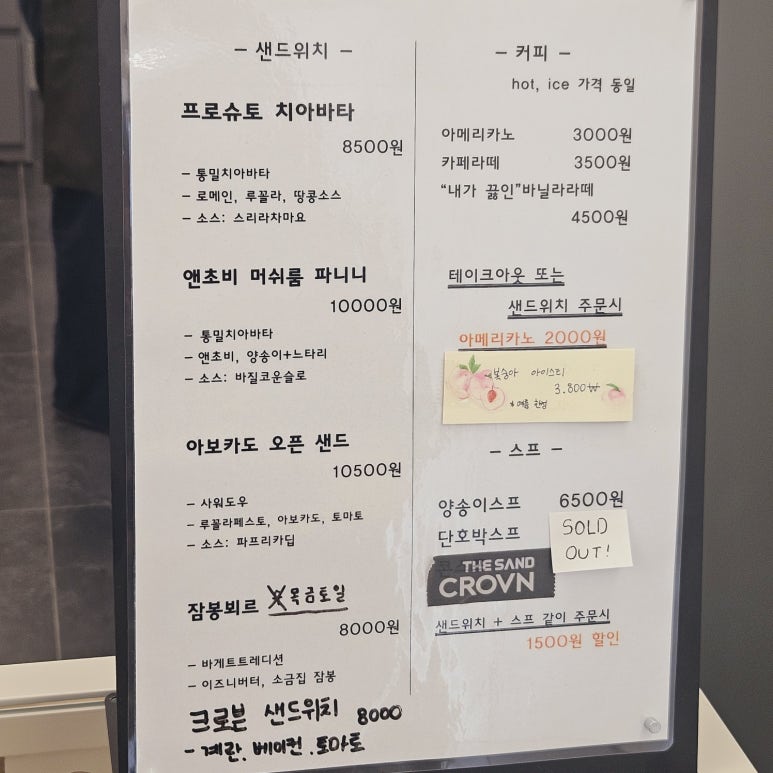 - 샌드위치 -
프로슈토 치아바타
8500원
- 통밀치아바타
- 로메인, 루꼴라, 땅콩소스
- 소스: 스리라차마요
앤초비 머쉬룸 파니니
10000원
- 통밀치아바타
- 앤초비, 양송이+느타리
- 소스: 바질코운슬로
아보카도 오픈 샌드
10500원
- 사워도우
- 루꼴라페스토, 아보카도, 토마토
- 소스: 파프리카딥
잠봉뵈르 목금토일
8000원
- 바게트트레디션
- 이즈니버터, 소금집 잠봉
크로븐 샌드위치 8000
- 계란. 베이컨. 토마토
- 커피 -
hot, ice 가격 동일
아메리카노 3000원
카페라떼 3500원
“내가 끓인”바닐라라떼
4500원
테이크아웃 또는
샌드위치 주문시
아메리카노 2000원
복숭아 아이스티
3.800₩
* 여름 한정
- 스프 -
양송이스프 6500원
단호박스프
SOLD
OUT!
THE SAND
CROVN
샌드위치 + 스프 같이 주문시
1500원 할인